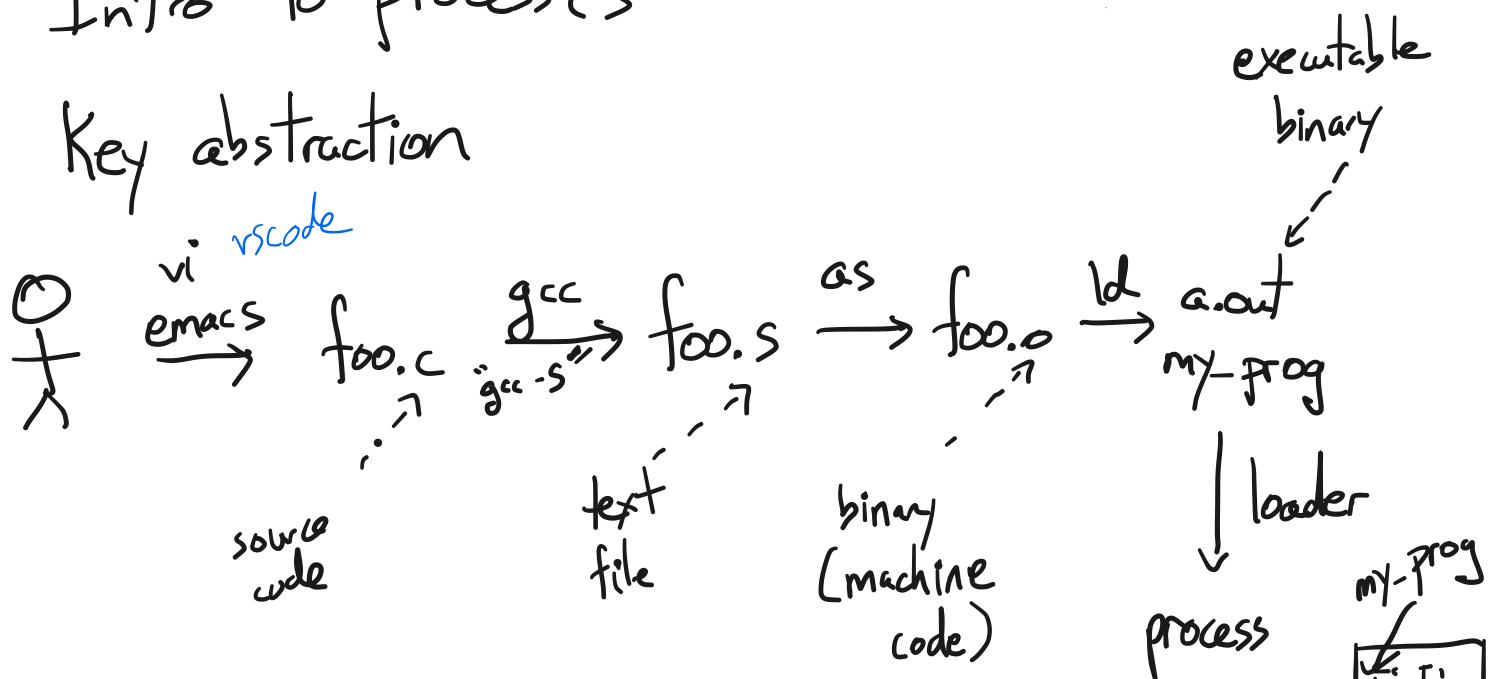 Intro to processes
Key abstraction
executable
binary
vi vscode
emacs
foo.c
gcc
"gcc -S"
foo.s
as
foo.o
ld
a.out
my-prog
source
code
text
file
binary
(machine
code)
loader
process
my-prog